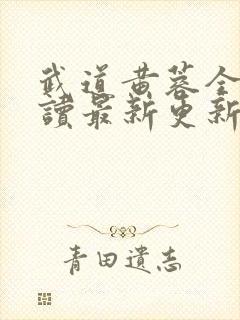 武道黄蓉全
讀最新更新
青田遺志